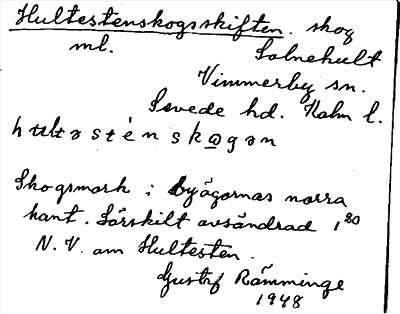 Hultestenskogsskiften. skog
ml. Solnehult
Vimmerby sn.
Sevede hd. Kalm l.
hultəsténskωgən
Skogsmark i byägornas norra
kant. Särskilt avsöndrad 1920
N.V. om Hultesten.
Gustaf Rämminge
1948